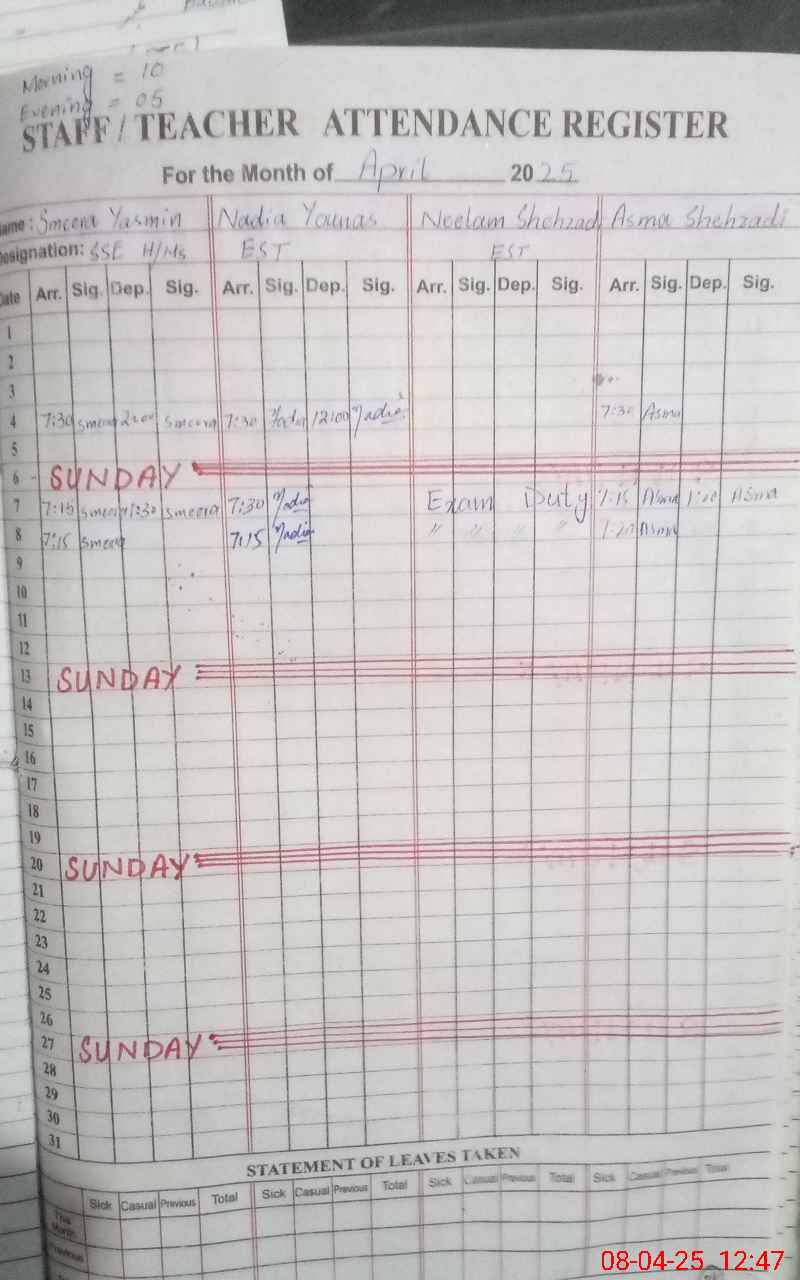 Morning = 10
Evening = 05
STAFF / TEACHER ATTENDANCE REGISTER
For the Month of April 2025
Name: Smeera Yasmin Nadia Younas Neelam Shehzad Asma Shehzadi
Designation: SSE H/Ms EST EST
Date Arr. Sig. Dep. Sig. Arr. Sig. Dep. Sig. Arr. Sig. Dep. Sig. Arr. Sig. Dep. Sig.
1
2
3
4 7:30 smeera 2:00 smeera 7:30 Nadia 12:00 Nadia 7:30 Asma
5
6 - SUNDAY
7 7:15 smeera 1:30 smeera 7:30 Nadia Exam Duty 7:15 Asma 1:20 Asma
8 7:15 smeera 7:15 Nadia " " " " Asma
9
10
11
12
13 SUNDAY
14
15
16
17
18
19
20 SUNDAY
21
22
23
24
25
26
27 SUNDAY
28
29
30
31
STATEMENT OF LEAVES TAKEN
Sick Casual Previous Total Sick Casual Previous Total Sick Casual Previous Total Sick Casual Previous Total
This Month
Previous
08-04-25 12:47